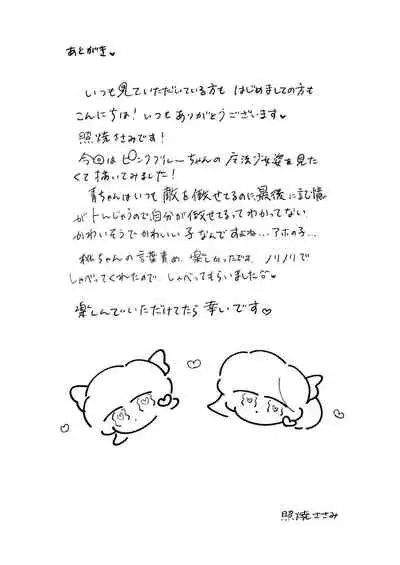 あとがき♥
いつも見ていただいている方も はじめましての方も
こんにちは！いつもありがとうございます♥
照焼ささみです！
今回はピンクブルーちゃんの魔法少女姿を見た
くて描いてみました！
青ちゃんはいつも敵を倒せてるのに最後に記憶
がトんじゃうので自分が倒せてるってわかってない
かわいそうでかわいい子なんですよね…アホの子…
桃ちゃんの言葉責め、楽しかったです。ノリノリで
しゃべってくれたので しゃべってもらいました
楽しんでいただけてたら 幸いです♥
照焼ささみ